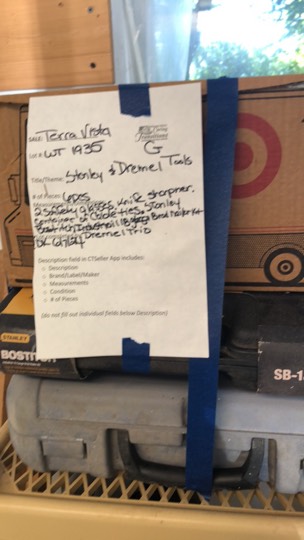 SALE: Terra Vista
Lot #: WT 1935
G
Title/Theme: Stanley & Dremel Tools
# of Pieces: 6pcs
2 Safety glasses Knife sharpner,
container of Stanley
Dremel Trio
Description field in CTSeller App includes:
○ Description
○ Brand/Label/Maker
○ Measurements
○ Condition
○ # of Pieces
(do not fill out individual fields below Description)
STANLEY
BOSTIT
SB-1